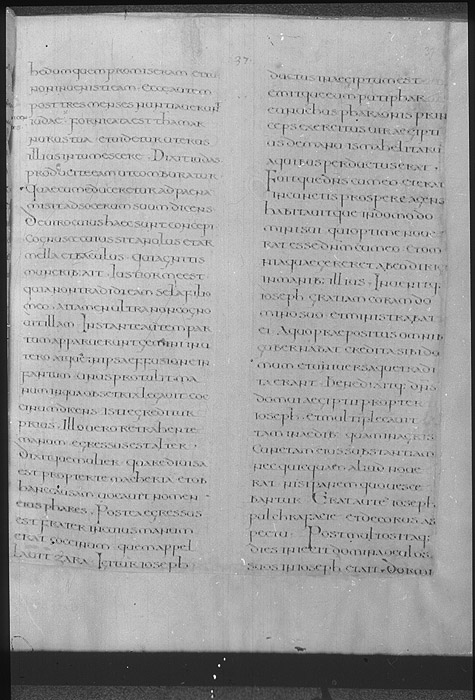 37
hedum quem promiseram et tu
non invenisti eam. Ecce autem
post tres menses nuntiaverunt
iudae. Fornicata est thamar
nurus tua. et videtur uterus
illius intumescere. Dixit iudas
producite eam ut comburatur
quae cum educeretur ad poenam
misit ad socerum suum dicens
De viro cuius haec sunt concepi
cognosce cuius sit anulus et ar
mella et baculus. qui agnitis
muneribus ait. Iustior me est
quia non tradidi eam sela filio
meo. attamen ultra non cogno
vit illam. Instante autem par
tu apparuerunt gemini in u
tero atque in ipsa effusione in
fantium. unus protulit ma
num in qua obsetrix ligavit coc
cinum dicens. Iste egredietur
prius. Illo vero retrahente
manum egressus est alter.
Dixitque mulier. quare divisa
est propter te maceria et ob
hanc causam vocavit nomen
eius phares. Postea egressus
est frater in cuius manu
erat coccinum. quem appel
lavit zara. Igitur ioseph
ductus in aegiptum est
emitque eum putiphar
eunuchus pharaonis prin
ceps exercitus vir aegipti
us de manu ismahelitaru
a quibus perductus erat.
Fuitque dns cum eo et erat
in cunctis prospere agens
habitavitque in domo do
mini sui. qui optime nove
rat esse dnm cum eo. et om
nia quae gereret ab eo dirigi
in manu illius. Invenitq;
ioseph gratiam coram do
mino suo. et ministrabat
ei. A quo praepositus omnib
gubernabat creditam sibi do
mum et universa quae tradi
ta erant. Benedixitq; dns
domui aegiptii propter
ioseph. et multiplicavit
tam in aedib; quam in agris
cunctam eius substantiam
nec quicquam aliud nove
rat nisi panem quo vesce
batur. Erat aute ioseph
pulchra facie et decorus as
pectu. Post multos itaq;
dies iniecit domina oculos
suos in ioseph et ait. Dormi